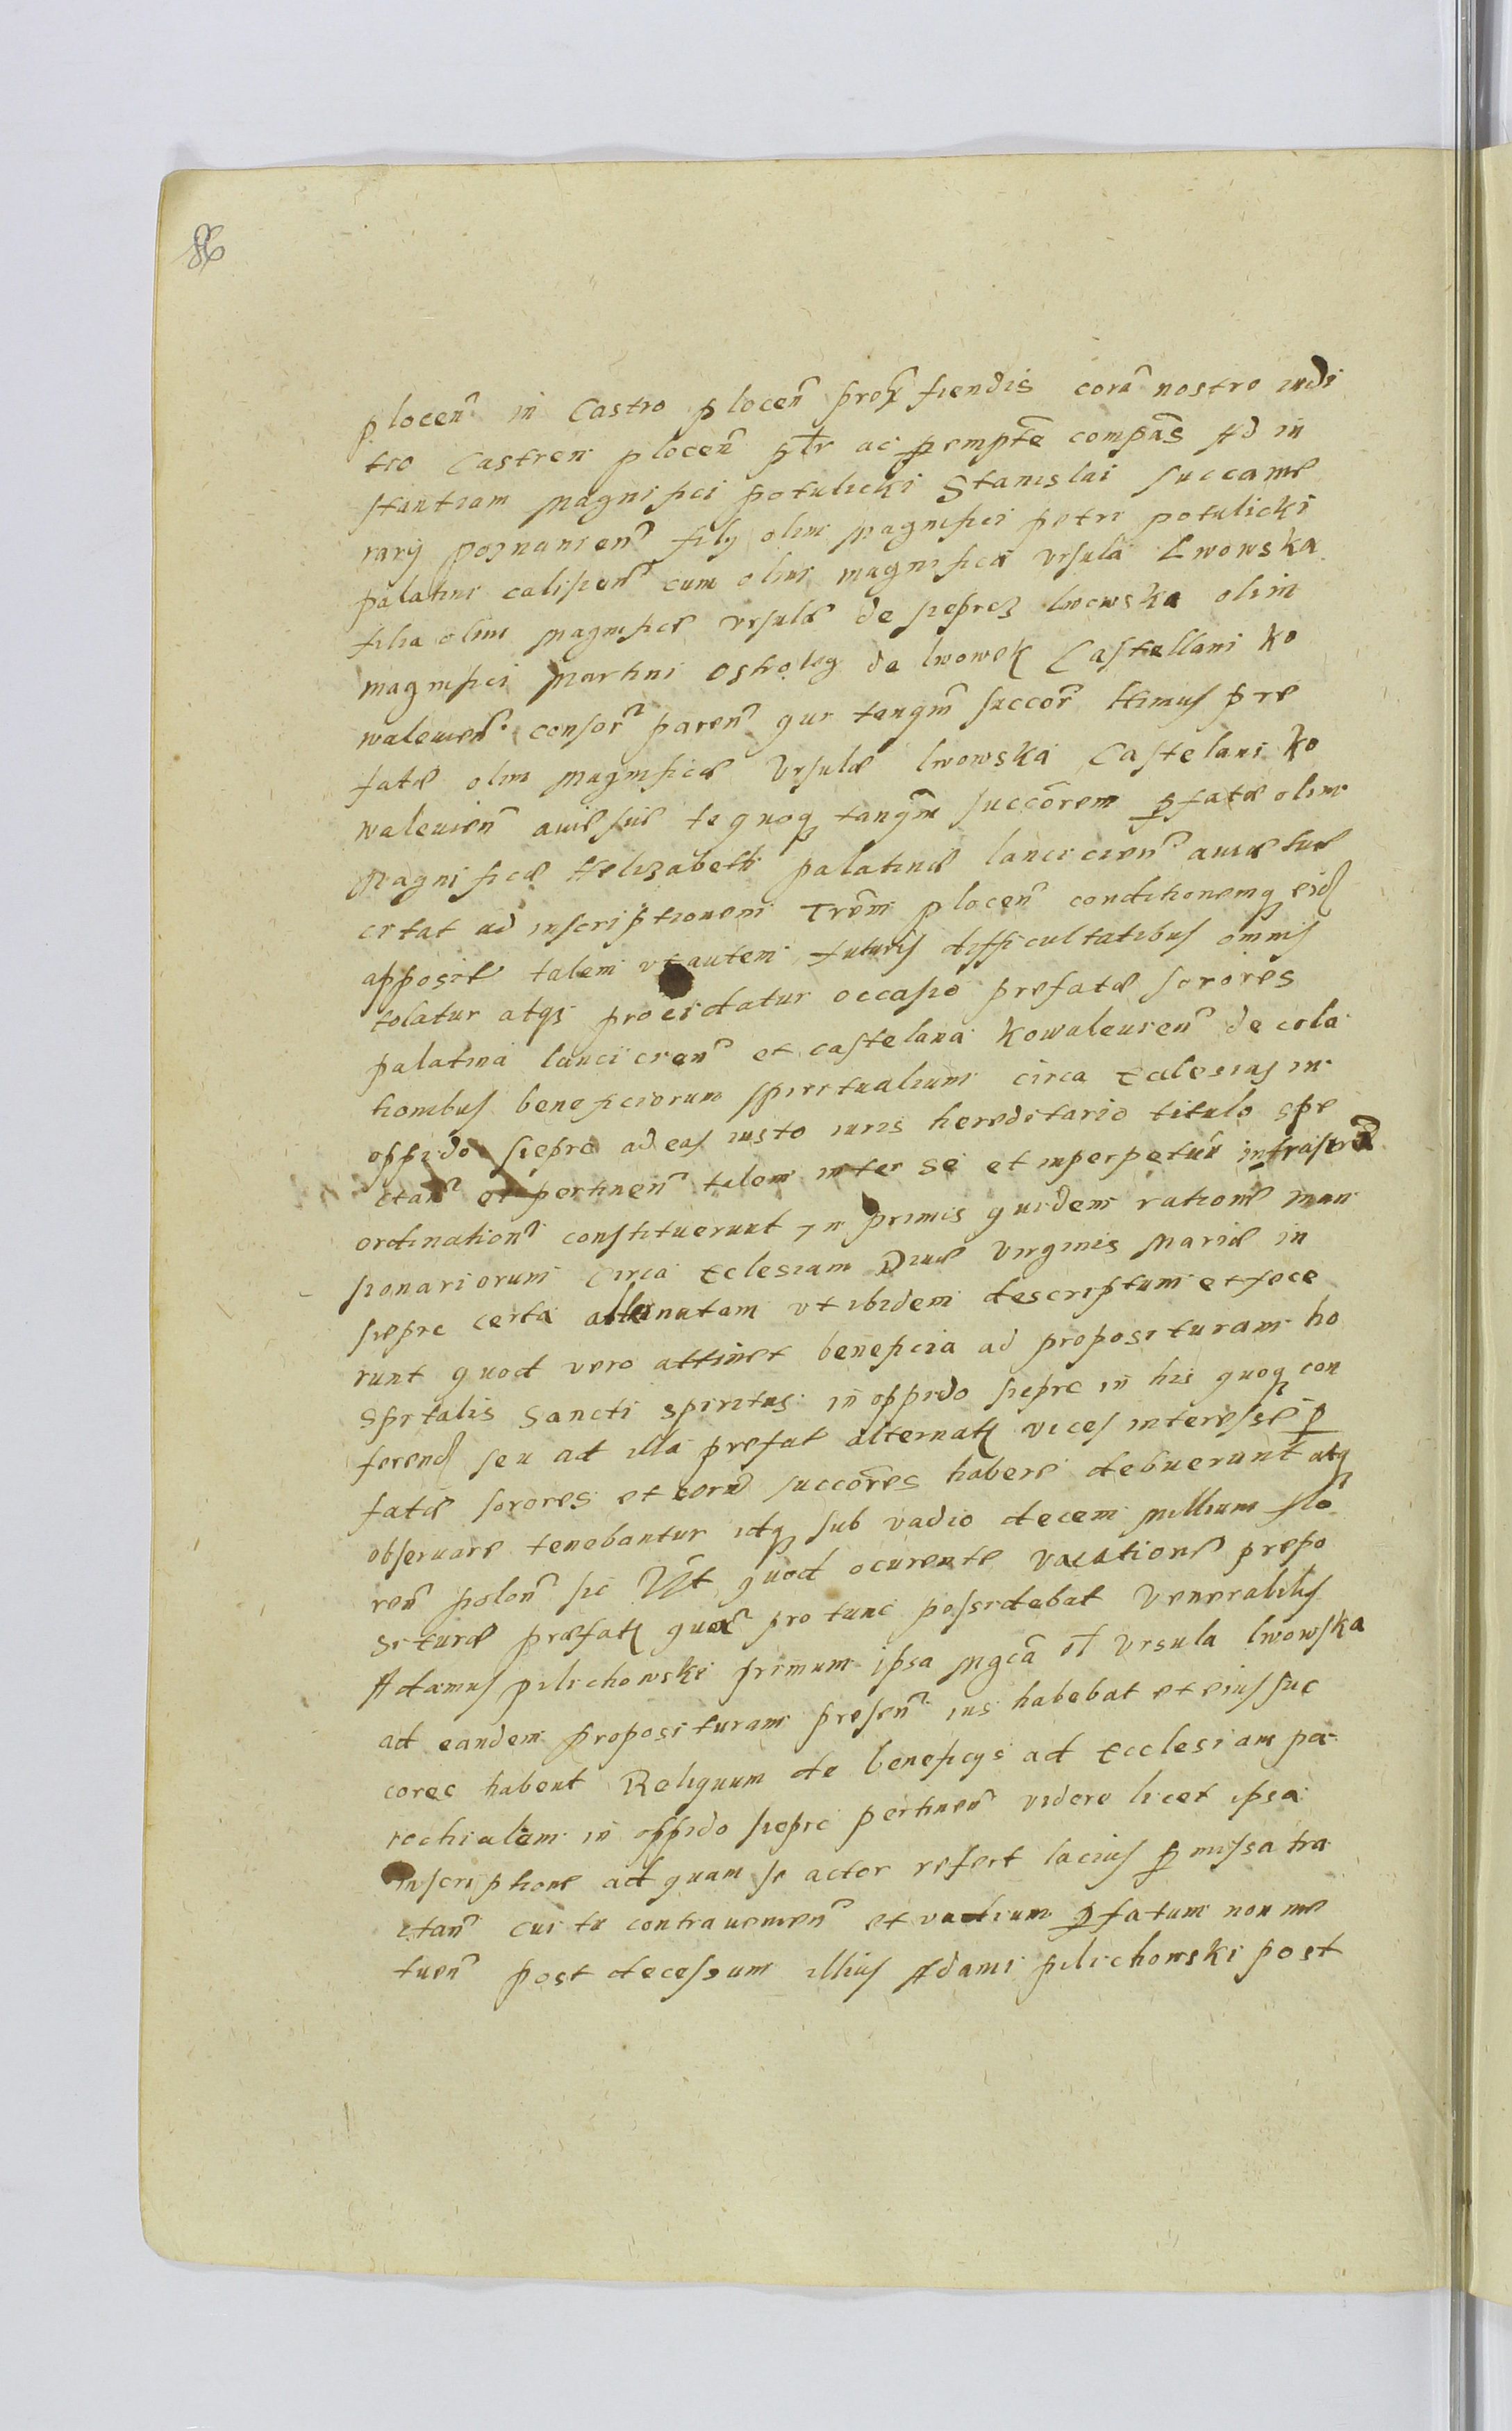 plocen̄ in Castro plocen̄ prox fiendis corā nostro iudi
tio Castren plocen̄ ptr ac pemptē compās Ad in
stantiam Magnifici potulicki Stanislai Succame
rarij posnanien̄ filij olim Magnifici petri potulicki
palatini calisien̄ cum olim magnifica Vrsula Lwowska
filia olim Magnificæ Vrsulæ de sieprcz lwowska olim
magnifici Martini Ostrolog de lwowek Castellani ko
walewien̄ consor̄ paren̄ qui tanqm̄ succor̄ Himus pre
fatæ olim Magnificæ Vrsulæ lwowska Castelani ko
walewien̄ auiæ suæ te quoq tanqm̄ succōrem pfatæ olim
Magnificæ Helizabeth palatinæ lancicien̄ auiæ tuæ
citat ad inscriptionem Trem̄ plocen̄ conditionemq eid
apposit talem vt autem futuris difficultatibus omnis
tolatur atqs procidatur occasio prefatæ sorores
palatina lancicien̄ et castelana kowaleuien̄ de cola
tionibus beneficiorum spiritualium circa Ecclesias in
oppido sieprc ad eas iusto iuris hereditario titulo spe
ctan̄ et pertinen̄ talem inter se et inperpetuū infrascr
ordination̄ constituerunt in primis quidem ratione man
sionariorum Circa Eclesiam Diuæ Virginis Mariæ in
sieprc certa alternatam vt ibidem descriptum et fece
runt quod vero attinet beneficia ad preposituram ho
spitalis Sancti spiritus in oppido sieprc in his quoq con
ferend seu ad illa prefat alternat vices interesse p
fatæ sorores et eorū succōres habere debuerunt atq
obseruare tenebantur idq sub vadio decem Millium flo
ren̄ polon̄ sic Vt quod ocurente vacatione prepo
situræ præfat quam pro tunc possidebat Venerabilis
Adamus pilichowski primum ipsa Mgcā ol Vrsula lwowska
ad eandem preposituram presen̄ ius habebat et eius suc
cores habent Reliquum de beneficijs ad Ecclesiam pa
rochialem in oppido sieprc pertinen̄ videre licet ipsa
inscriptione ad quam se actor refert lacius pmissa tra
ctan̄ cui tu contrauenien̄ et vadium pfatum non me
tuen̄ post decessum illius Adami pilichowski post